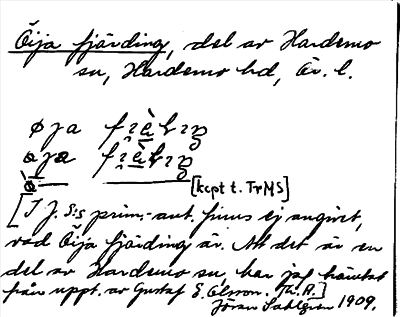 Öija fjärding, del av Hardemo
sn, Hardemo hd, Ör. l.
øja
[kcpt t. TrMS]
[I J. S:s prim.-ant. finns ej angivet,
vad Öija fjärding är. Att det är en
del av Hardemo sn, har jag hämtat
från uppt. av Gustaf E. Olsson. Th. A.]
Jöran Sahlgren 1909.